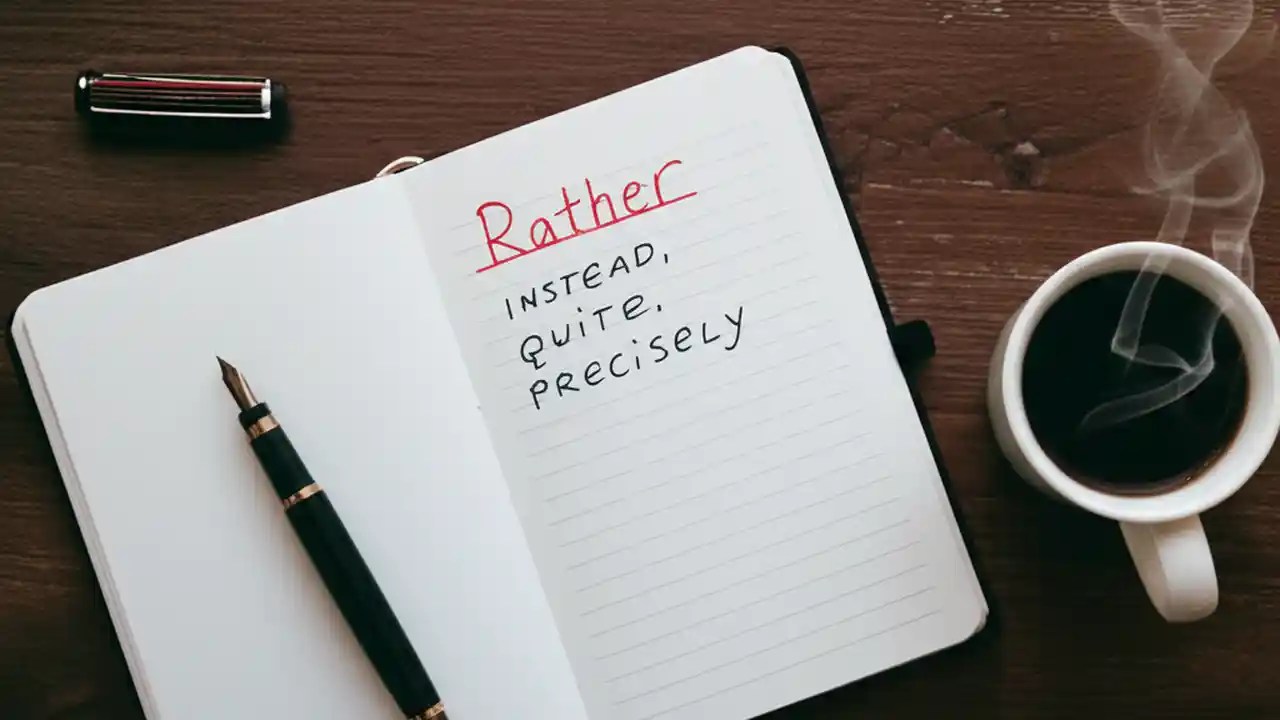 Rather
INSTEAD,
QUITE,
PRECISELY